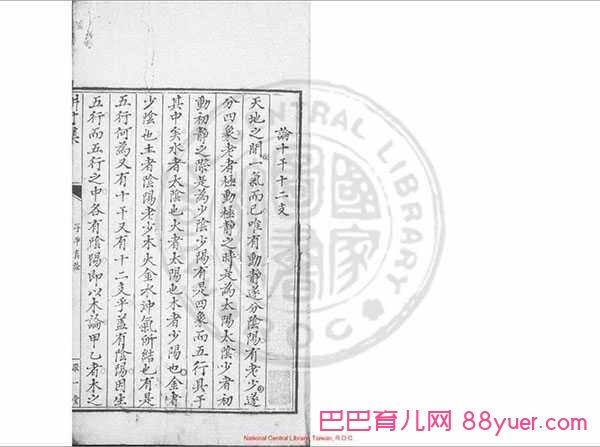 論十干十二支
天地之間一氣而已唯有動靜遂分陰陽有老少遂
分四象老者極動極靜之時是為太陽太陰少者初
動初靜之際是為少陰少陽有是四象而五行具于
其中矣水者太陰也火者太陽也木者少陽也金者
少陰也土者陰陽老少木火金水沖氣所結也有是
五行何為又有十干又有十二支乎蓋有陰陽因生
五行而五行之中各有陰陽即以木論甲乙者木之
子平真詮
CENTRAL LIBRARY
R.O.C
國家圖書
巴巴育儿网 88yuer.com
National Central Library, Taiwan, R.O.C